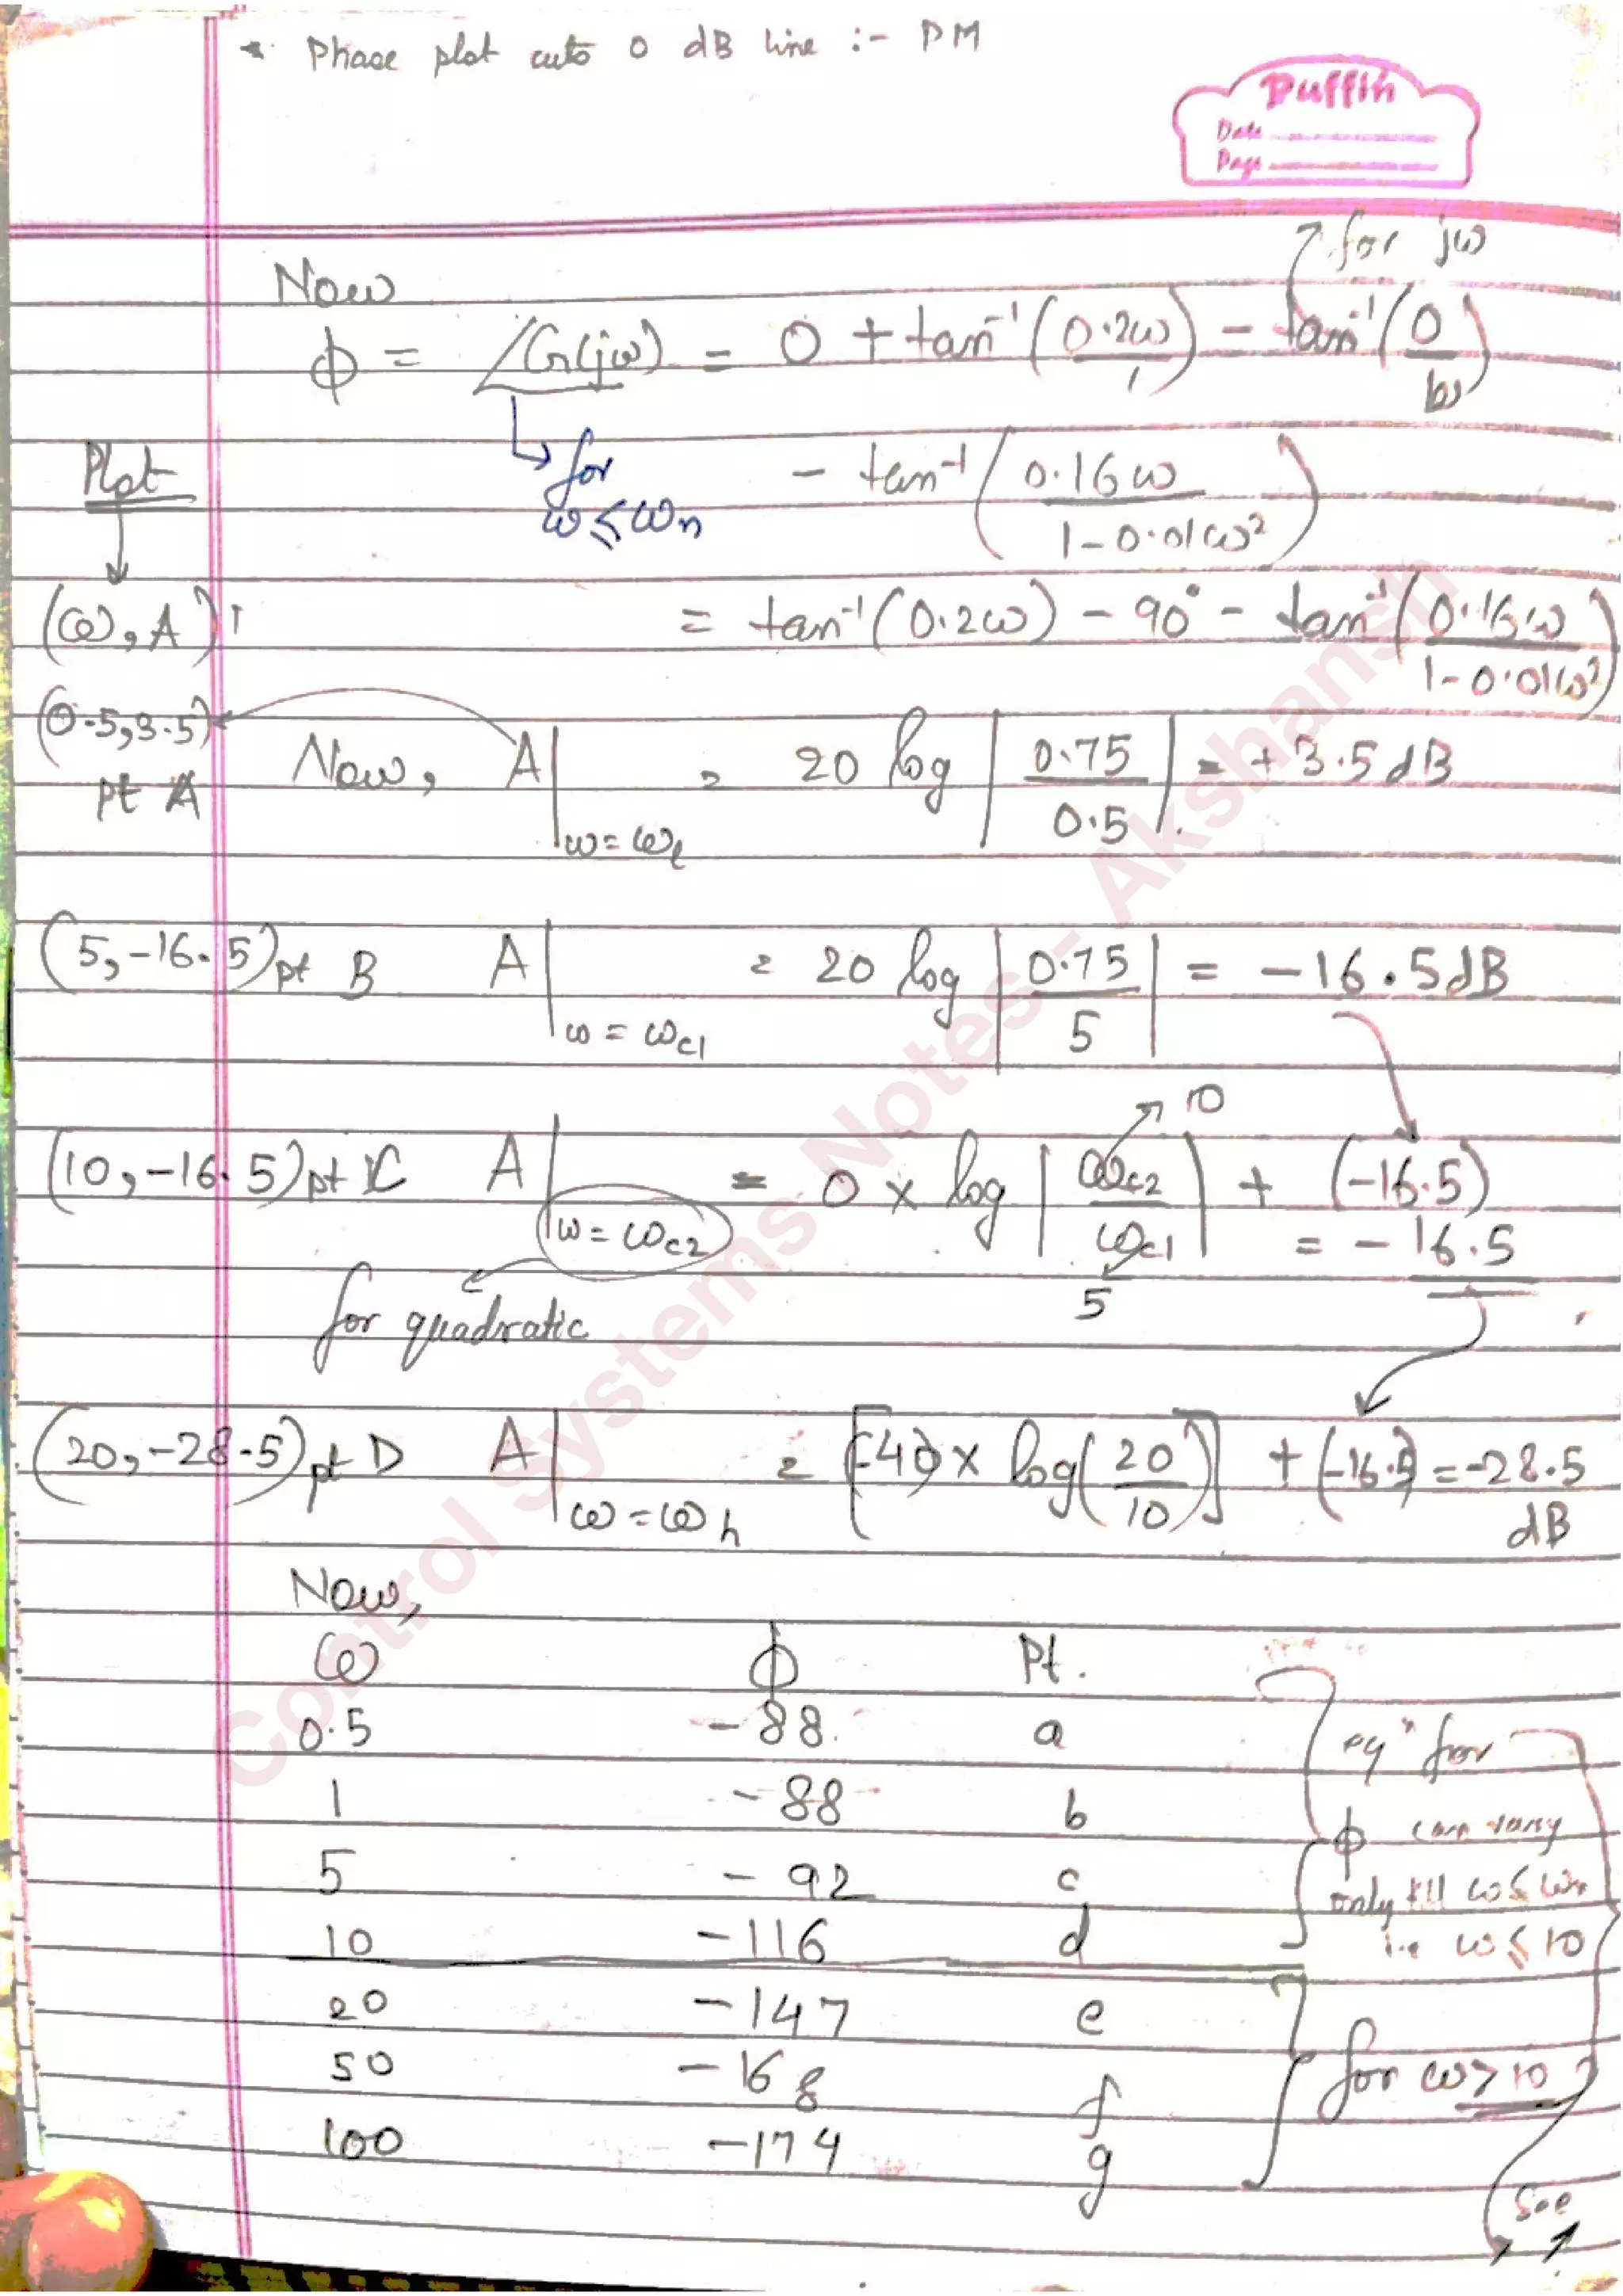 * Phase plot cuts 0 dB line :- PM
Puffin
Date
Page
for jω
Now
ϕ = ∠G(jω) = 0 + tan⁻¹(0.2ω/1) - tan⁻¹(0/ω)
for ω ≤ ωn
- tan⁻¹(0.16ω/1-0.01ω²)
Plot
(ω, A)
= tan⁻¹(0.2ω) - 90° - tan⁻¹(0.16ω/1-0.01ω²)
(0.5, 3.5) pt A
Now, A|ω=ωl = 20 log |0.75/0.5| = + 3.5 dB
(5, -16.5) pt B A|ω=ωc1 = 20 log |0.75/5| = -16.5 dB
10
(10, -16.5) pt C A|ω=ωc2 = 0 × log |ωc2/ωc1| + (-16.5)
= -16.5
5
for quadratic
(20, -28.5) pt D A|ω=ωh = [-40 × log(20/10)] + (-16.5) = -28.5 dB
Now,
ω ϕ Pt.
0.5 -88 a
1 -88 b
5 -92 c
10 -116 d
20 -147 e
50 -168 f
100 -174 g
eqⁿ for
ϕ can vary
only till ω ≤ ωn
i.e ω ≤ 10
for ω > 10
See
Control Systems Notes - Akshansh